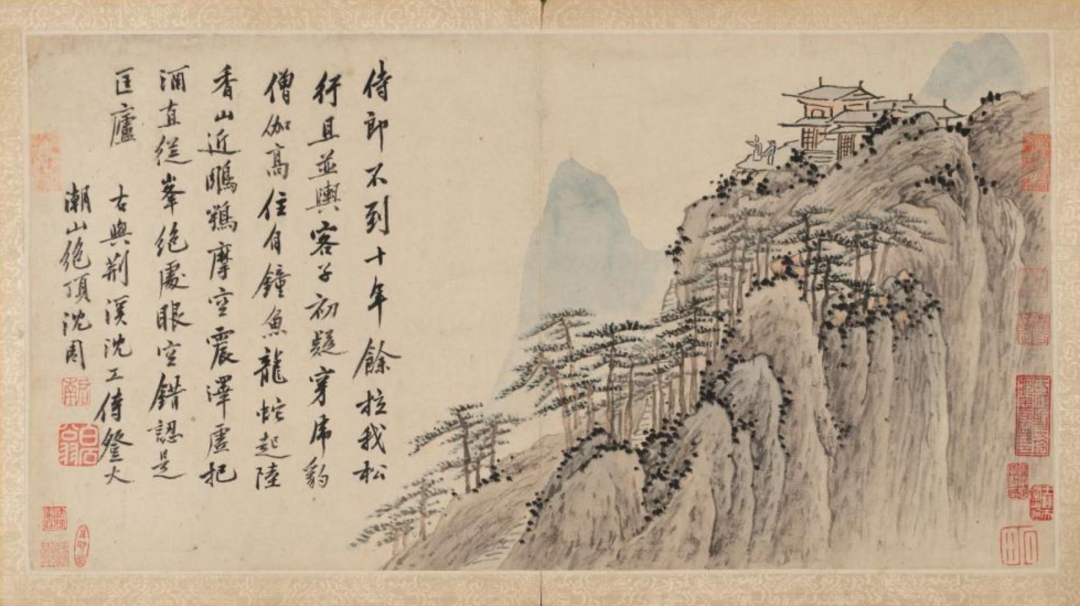 侍郎不到十年餘拉我松
行且並輿客子初疑穿虎豹
僧伽高住自鐘魚龍蛇起陸
香山近鵰鶚摩空震澤虛把
酒直從峯絕處眼空錯認是
匡廬
右與荊溪沈工侍登大
潮山絕頂沈周
啟南
白石翁